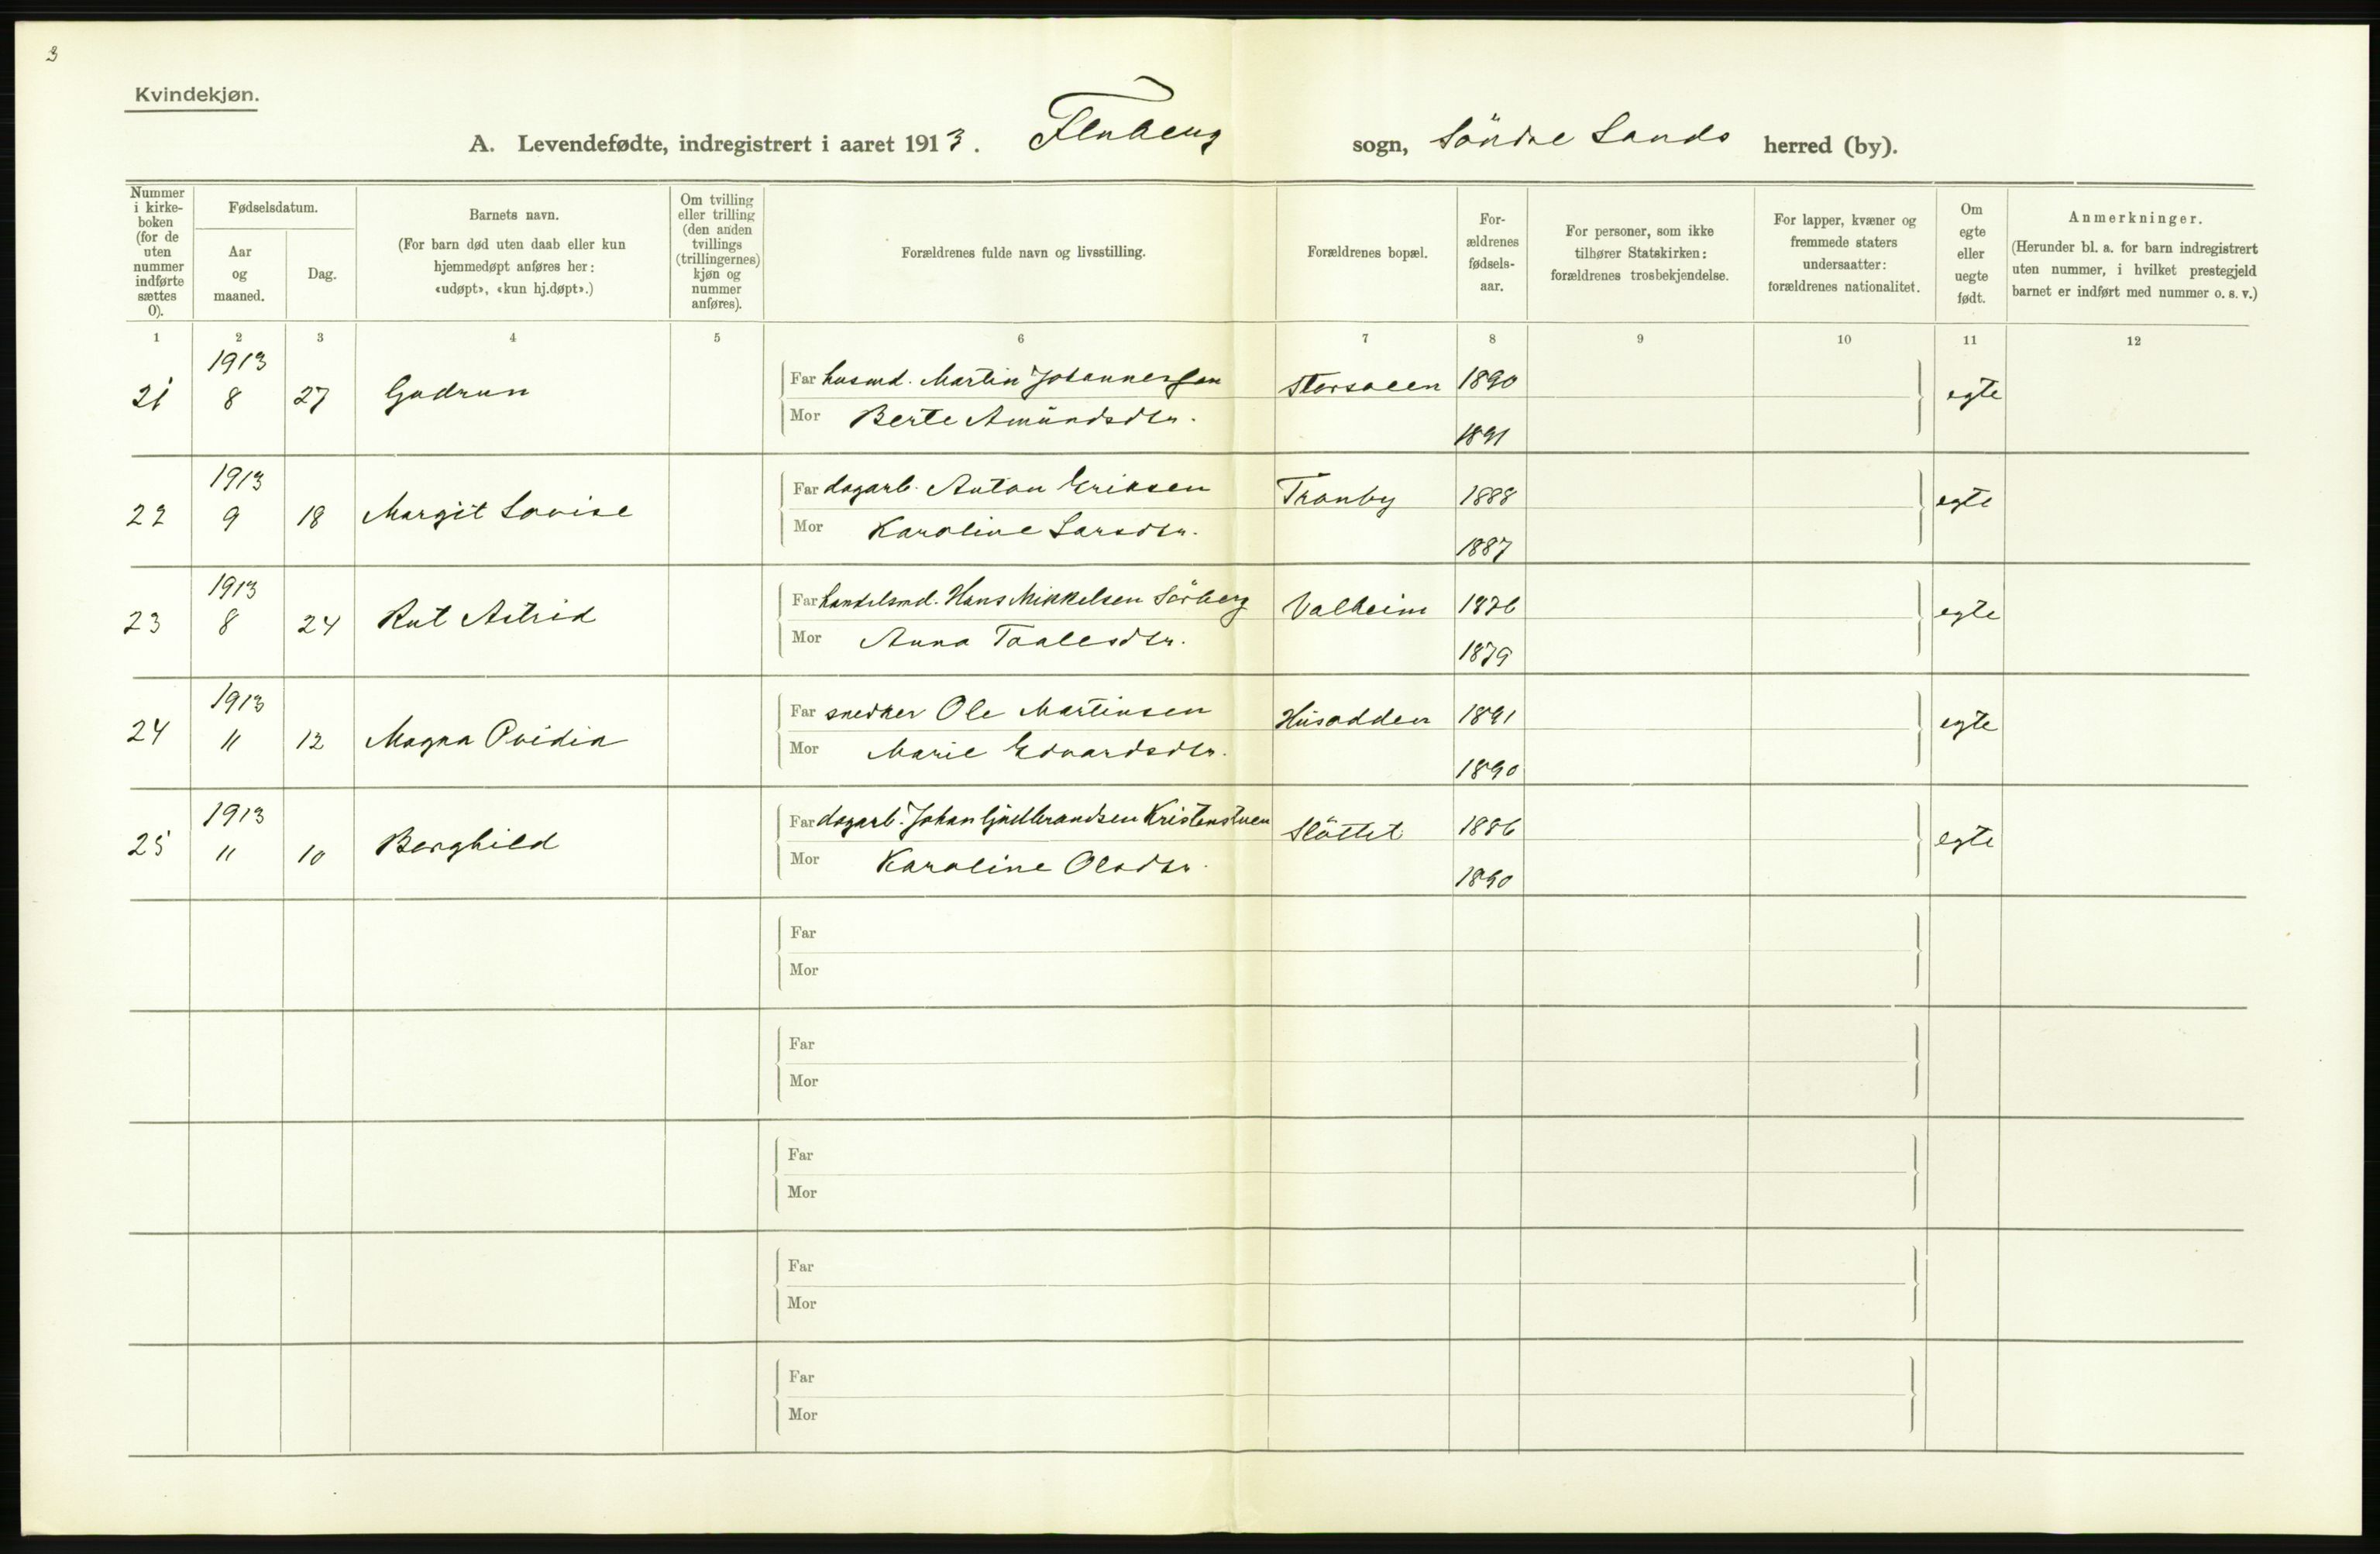 3
Kvindekjøn.
A. Levendefødte, indregistrert i aaret 1913. Fluberg sogn, Söndre Lands herred (by).
Nummer i kirke- boken (for de uten nummer indførte sættes 0).
Fødselsdatum.
Aar og maaned.
Dag.
Barnets navn.
(For barn død uten daab eller kun hjemmedøpt anføres her: «udøpt», «kun hj.døpt».)
Om tvilling eller trilling (den anden tvillings (trillingernes) kjøn og nummer anføres).
Forældrenes fulde navn og livsstilling.
Forældrenes bopæl.
For- ældrenes fødsels- aar.
For personer, som ikke tilhører Statskirken: forældrenes trosbekjendelse.
For lapper, kvæner og fremmede staters undersaatter: forældrenes nationalitet.
Om egte eller uegte født.
Anmerkninger.
(Herunder bl. a. for barn indregistrert uten nummer, i hvilket prestegjeld barnet er indført med nummer o. s. v.)
1 2 3 4 5 6 7 8 9 10 11 12
1913
21 8 27 Gudrun Far husmd. Martin Johannessen 1890 egte
Mor Berte Amündsdtr. 1891
1913
22 9 18 Margit Lovise Far dagarb. Anton Eriksen Tranby 1888 egte
Mor Karoline Larsdtr. 1887
1913
23 8 24 Rut Astrid Far handelsmd. Hans Mikkelsen Sörberg Valheim 1876 egte
Mor Anna Taalesdtr. 1879
1913
24 11 12 Magna Ovidia Far snedker Ole Martinsen Hüsodden 1891 egte
Mor Marie Edvardsdtr. 1890
1913
25 11 10 Borghild Far dagarb. Johan Gudbrandsen Kristenstuen Slöttet 1886 egte
Mor Karoline Olsdtr. 1890
Far
Mor
Far
Mor
Far
Mor
Far
Mor
Far
Mor